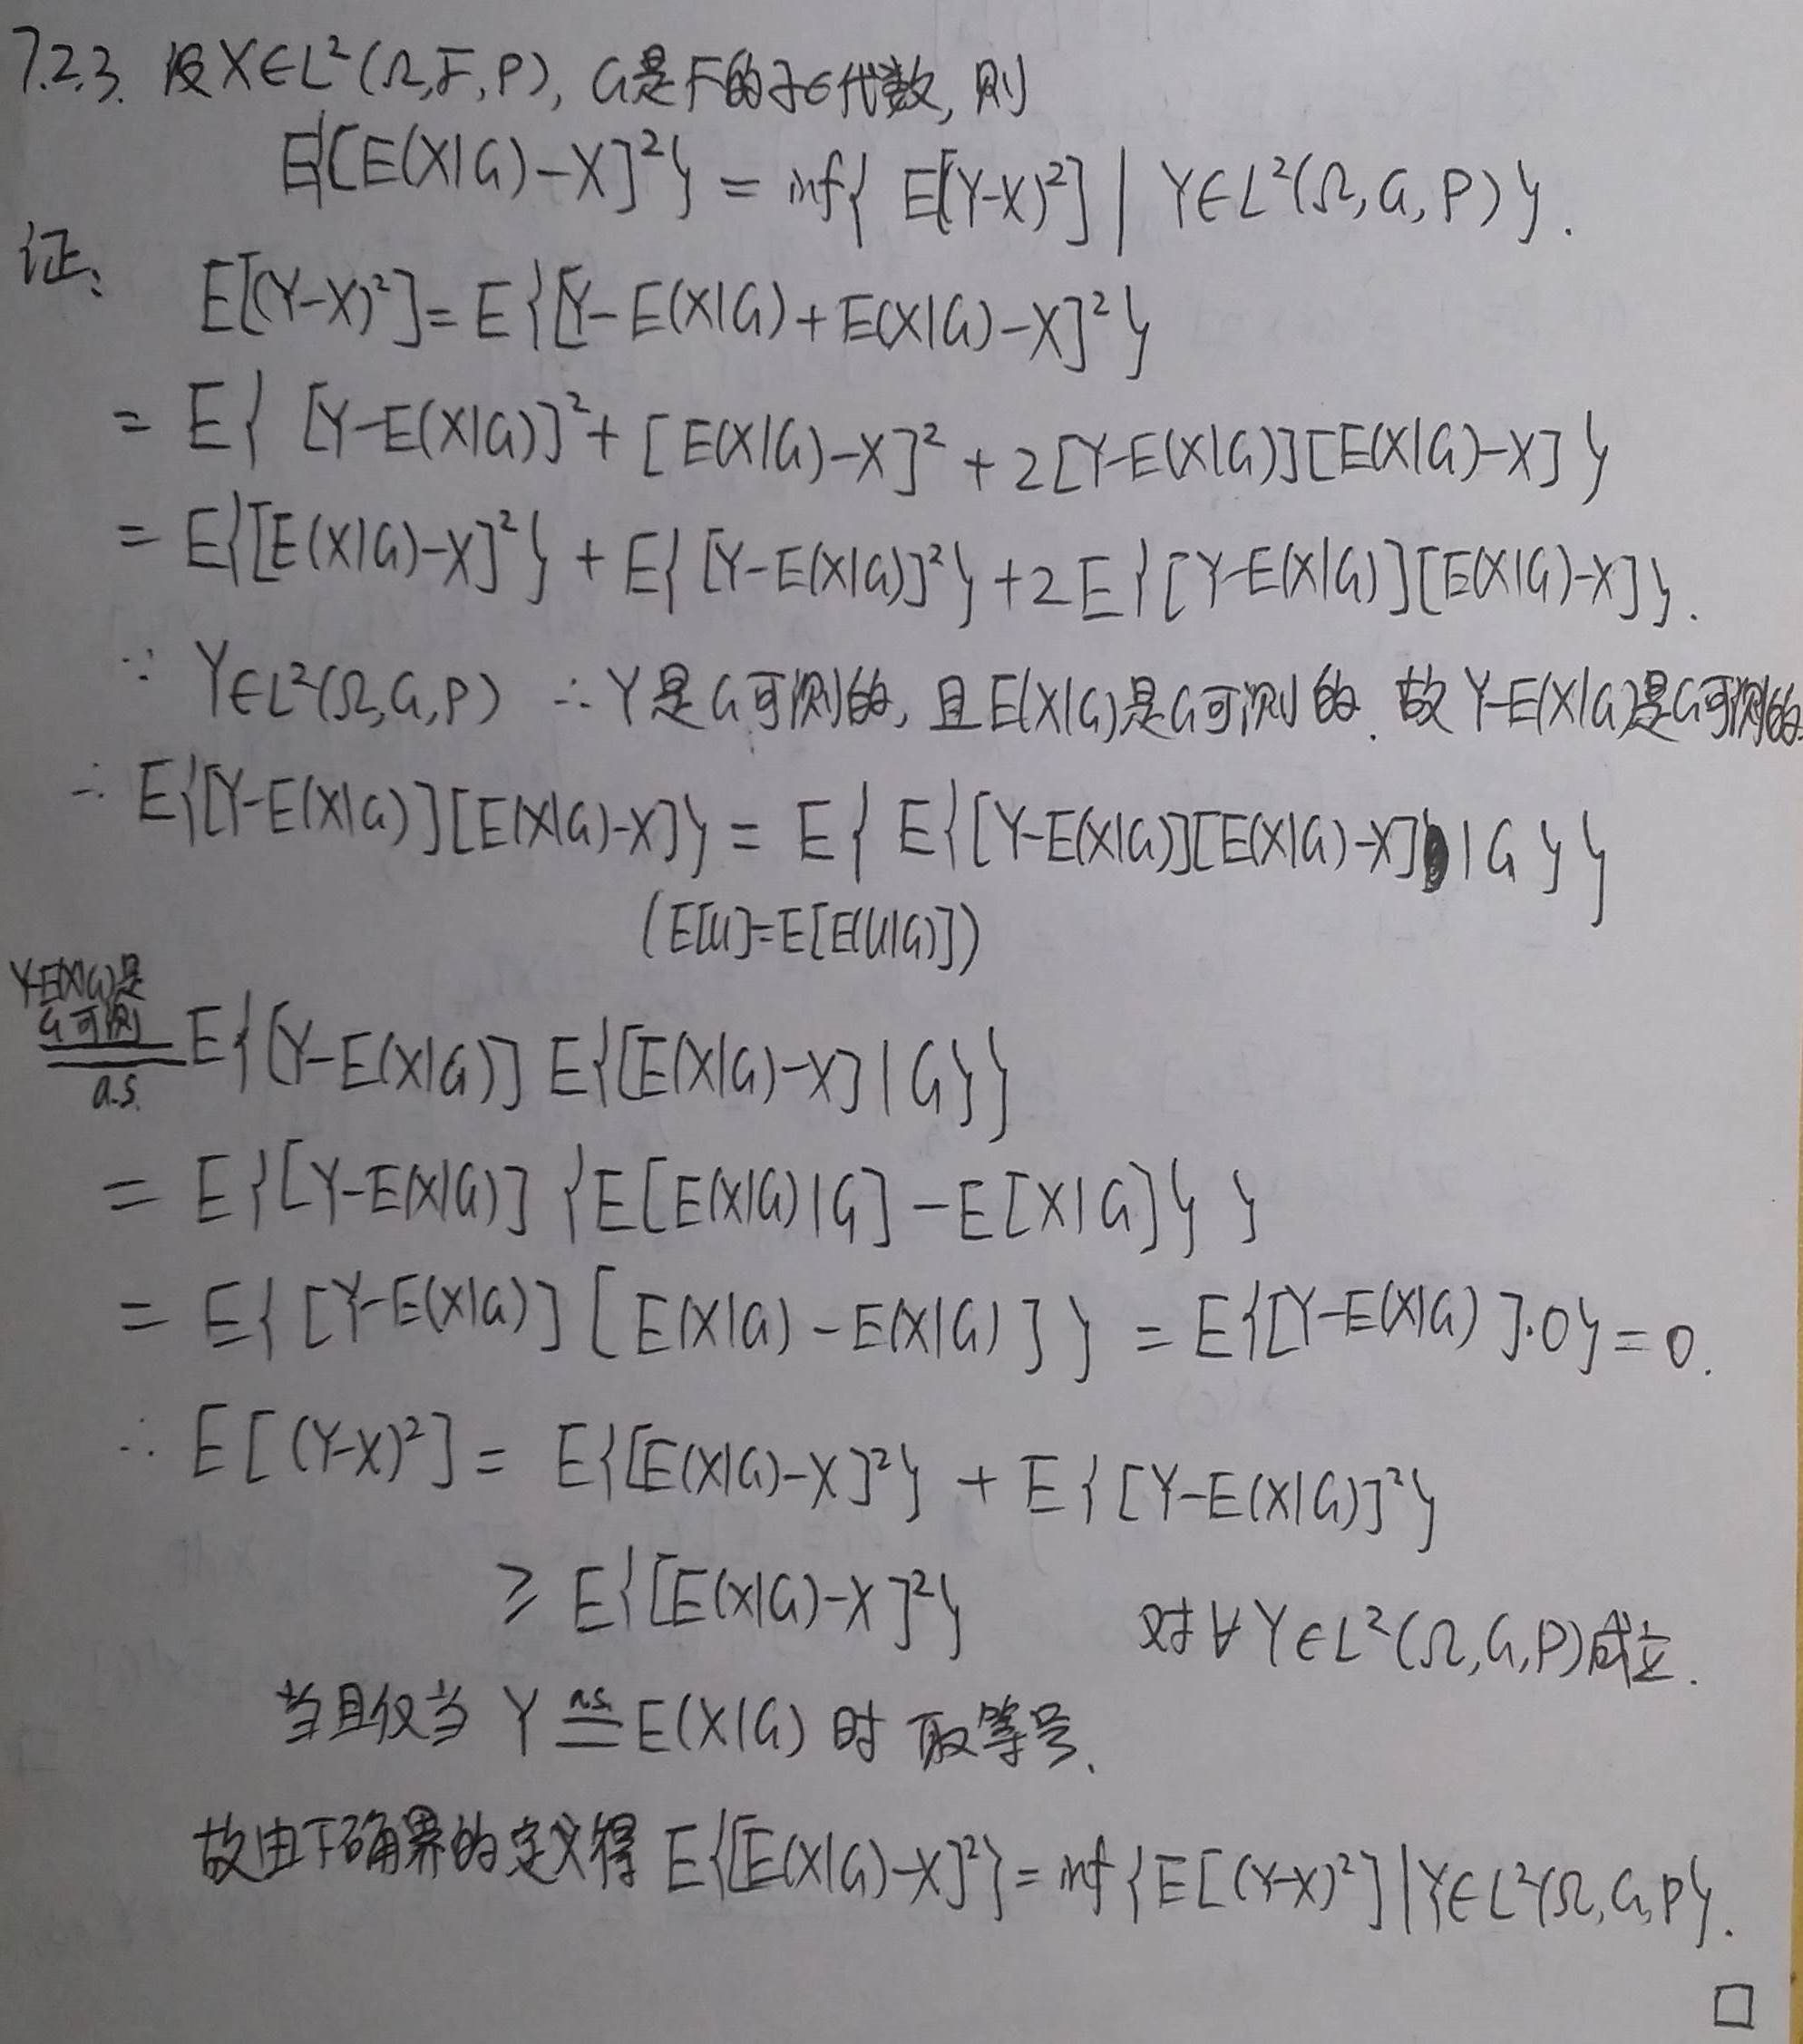 7.2.3. 设X∈L²(Ω,F,P), G是F的子σ代数, 则
E{[E(X|G)-X]²} = inf{ E[(Y-X)²] | Y∈L²(Ω,G,P) }.
证: E[(Y-X)²] = E{[Y-E(X|G)+E(X|G)-X]²}
= E{ [Y-E(X|G)]² + [E(X|G)-X]² + 2[Y-E(X|G)][E(X|G)-X] }
= E{[E(X|G)-X]²} + E{[Y-E(X|G)]²} + 2E{[Y-E(X|G)][E(X|G)-X]}.
∵ Y∈L²(Ω,G,P) ∴ Y是G可测的, 且E(X|G)是G可测的. 故Y-E(X|G)是G可测的.
∴ E{[Y-E(X|G)][E(X|G)-X]} = E{ E{[Y-E(X|G)][E(X|G)-X] | G } }
(E[U]=E[E(U|G)])
Y-E(X|G)是
G可测
a.s. E{[Y-E(X|G)] E{[E(X|G)-X] | G}}
= E{[Y-E(X|G)] {E[E(X|G)|G] - E[X|G]} }
= E{ [Y-E(X|G)] [E(X|G) - E(X|G)] } = E{[Y-E(X|G)]·0} = 0.
∴ E[(Y-X)²] = E{[E(X|G)-X]²} + E{[Y-E(X|G)]²}
≥ E{[E(X|G)-X]²} 对∀Y∈L²(Ω,G,P)成立.
当且仅当 Y a.s.= E(X|G) 时 取等号.
故由下确界的定义得 E{[E(X|G)-X]²} = inf{E[(Y-X)²] | Y∈L²(Ω,G,P}.
□